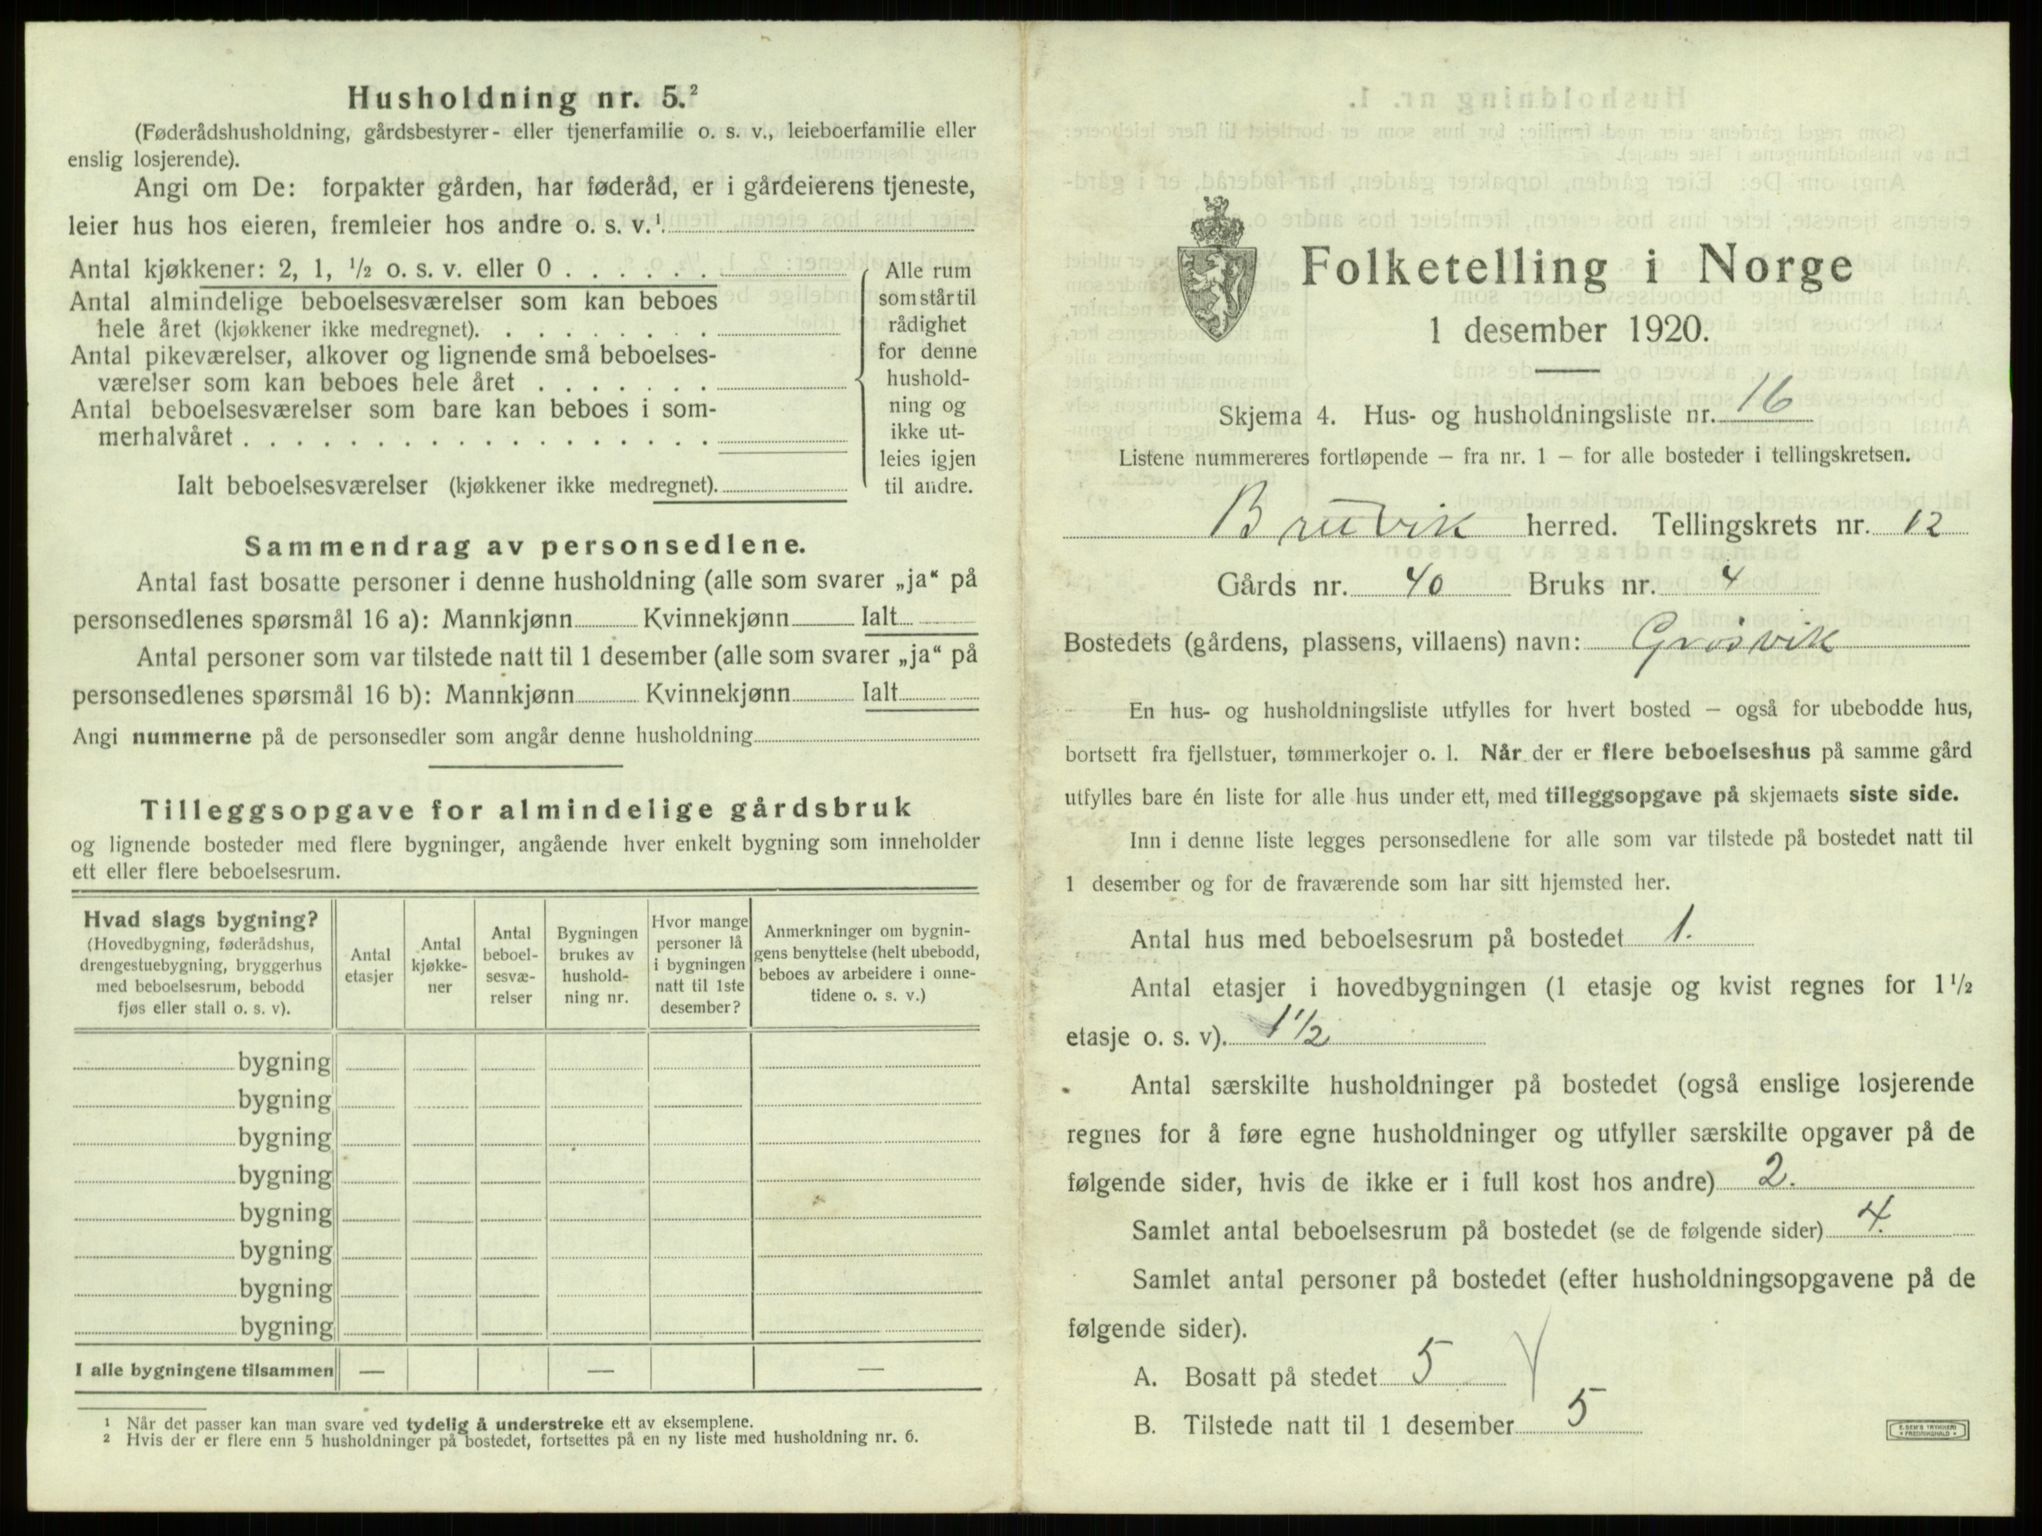 Husholdning nr. 5.²
(Føderådshusholdning, gårdsbestyrer- eller tjenerfamilie o. s. v., leieboerfamilie eller
enslig losjerende).
Angi om De: forpakter gården, har føderåd, er i gårdeierens tjeneste,
leier hus hos eieren, fremleier hos andre o. s. v.¹
Antal kjøkkener: 2, 1, ½ o. s. v. eller 0
Antal almindelige beboelsesværelser som kan beboes
hele året (kjøkkener ikke medregnet).
Antal pikeværelser, alkover og lignende små beboelses-
værelser som kan beboes hele året
Antal beboelsesværelser som bare kan beboes i som-
merhalvåret
Alle rum
som står til
rådighet
for denne
hushold-
ning og
ikke ut-
leies igjen
til andre.
Ialt beboelsesværelser (kjøkkener ikke medregnet).
Sammendrag av personsedlene.
Antal fast bosatte personer i denne husholdning (alle som svarer „ja“ på
personsedlenes spørsmål 16 a): Mannkjønn Kvinnekjønn Ialt
Antal personer som var tilstede natt til 1 desember (alle som svarer „ja“ på
personsedlenes spørsmål 16 b): Mannkjønn Kvinnekjønn Ialt
Angi nummerne på de personsedler som angår denne husholdning
Tilleggsopgave for almindelige gårdsbruk
og lignende bosteder med flere bygninger, angående hver enkelt bygning som inneholder
ett eller flere beboelsesrum.
Hvad slags bygning?
(Hovedbygning, føderådshus,
drengestuebygning, bryggerhus
med beboelsesrum, bebodd
fjøs eller stall o. s. v).
Antal
etasjer
Antal
kjøkke-
ner
Antal
beboel-
sesvæ-
relser
Bygningen
brukes av
hushold-
ning nr.
Hvor mange
personer lå
i bygningen
natt til 1ste
desember?
Anmerkninger om bygnin-
gens benyttelse (helt ubebodd,
beboes av arbeidere i onne-
tidene o. s. v.)
bygning
bygning
bygning
bygning
bygning
bygning
bygning
bygning
I alle bygningene tilsammen — — —
¹ Når det passer kan man svare ved tydelig å understreke ett av eksemplene.
² Hvis der er flere enn 5 husholdninger på bostedet, fortsettes på en ny liste med husholdning nr. 6.
Folketelling i Norge
1 desember 1920.
Skjema 4. Hus- og husholdningsliste nr. 16
Listene nummereres fortløpende — fra nr. 1 — for alle bosteder i tellingskretsen.
Bruvik herred. Tellingskrets nr. 12
Gårds nr. 40 Bruks nr. 4
Bostedets (gårdens, plassens, villaens) navn: Grøsvik
En hus- og husholdningsliste utfylles for hvert bosted — også for ubebodde hus,
bortsett fra fjellstuer, tømmerkojer o. l. Når der er flere beboelseshus på samme gård
utfylles bare én liste for alle hus under ett, med tilleggsopgave på skjemaets siste side.
Inn i denne liste legges personsedlene for alle som var tilstede på bostedet natt til
1 desember og for de fraværende som har sitt hjemsted her.
Antal hus med beboelsesrum på bostedet 1.
Antal etasjer i hovedbygningen (1 etasje og kvist regnes for 1½
etasje o. s. v). 1½
Antal særskilte husholdninger på bostedet (også enslige losjerende
regnes for å føre egne husholdninger og utfyller særskilte opgaver på de
følgende sider, hvis de ikke er i full kost hos andre) 2.
Samlet antal beboelsesrum på bostedet (se de følgende sider) 4.
Samlet antal personer på bostedet (efter husholdningsopgavene på de
følgende sider).
A. Bosatt på stedet 5
B. Tilstede natt til 1 desember 5